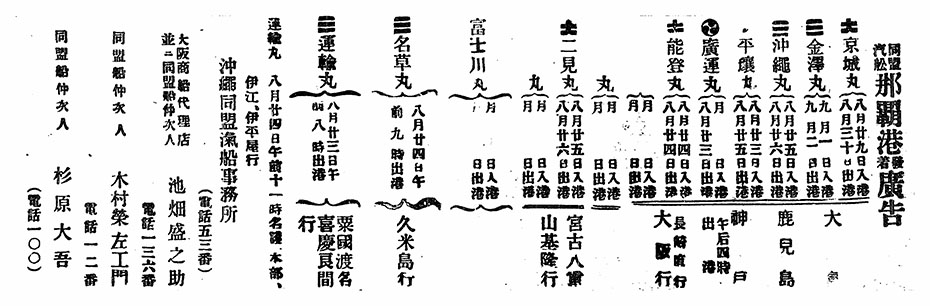 同盟汽船 那覇港發着廣告
京城丸 八月廿九日入港 八月三十日出港
金澤丸 九月一日入港 九月二日出港
沖繩丸 八月廿五日入港 八月廿六日出港
平壤丸 八月廿五日入港 八月廿六日出港
廣運丸 八月廿三日出港
能登丸 八月廿四日入港 八月廿四日出港
大
鹿兒島
神戸
午后四時出港
長崎直行
大阪行
丸 月 日入港 月 日出港
二見丸 八月廿五日入港 八月廿六日出港
丸 月 日入港 月 日出港
宮古八重山基隆行
富士川丸 月 日入港 日出港
名草丸 八月廿四日午前九時出港 久米島行
運輸丸 八月廿三日午前八時出港 粟國渡名喜慶良間行
運輸丸 八月廿四日午前十一時名護、本部、伊江、伊平屋行
沖繩同盟滊船事務所
(電話五三番)
大阪商船代理店
並ニ同盟船仲次人
池畑盛之助
電話一三六番
同盟船仲次人
木村榮左工門
電話一二番
同盟船仲次人
杉原大吾
(電話一〇〇)